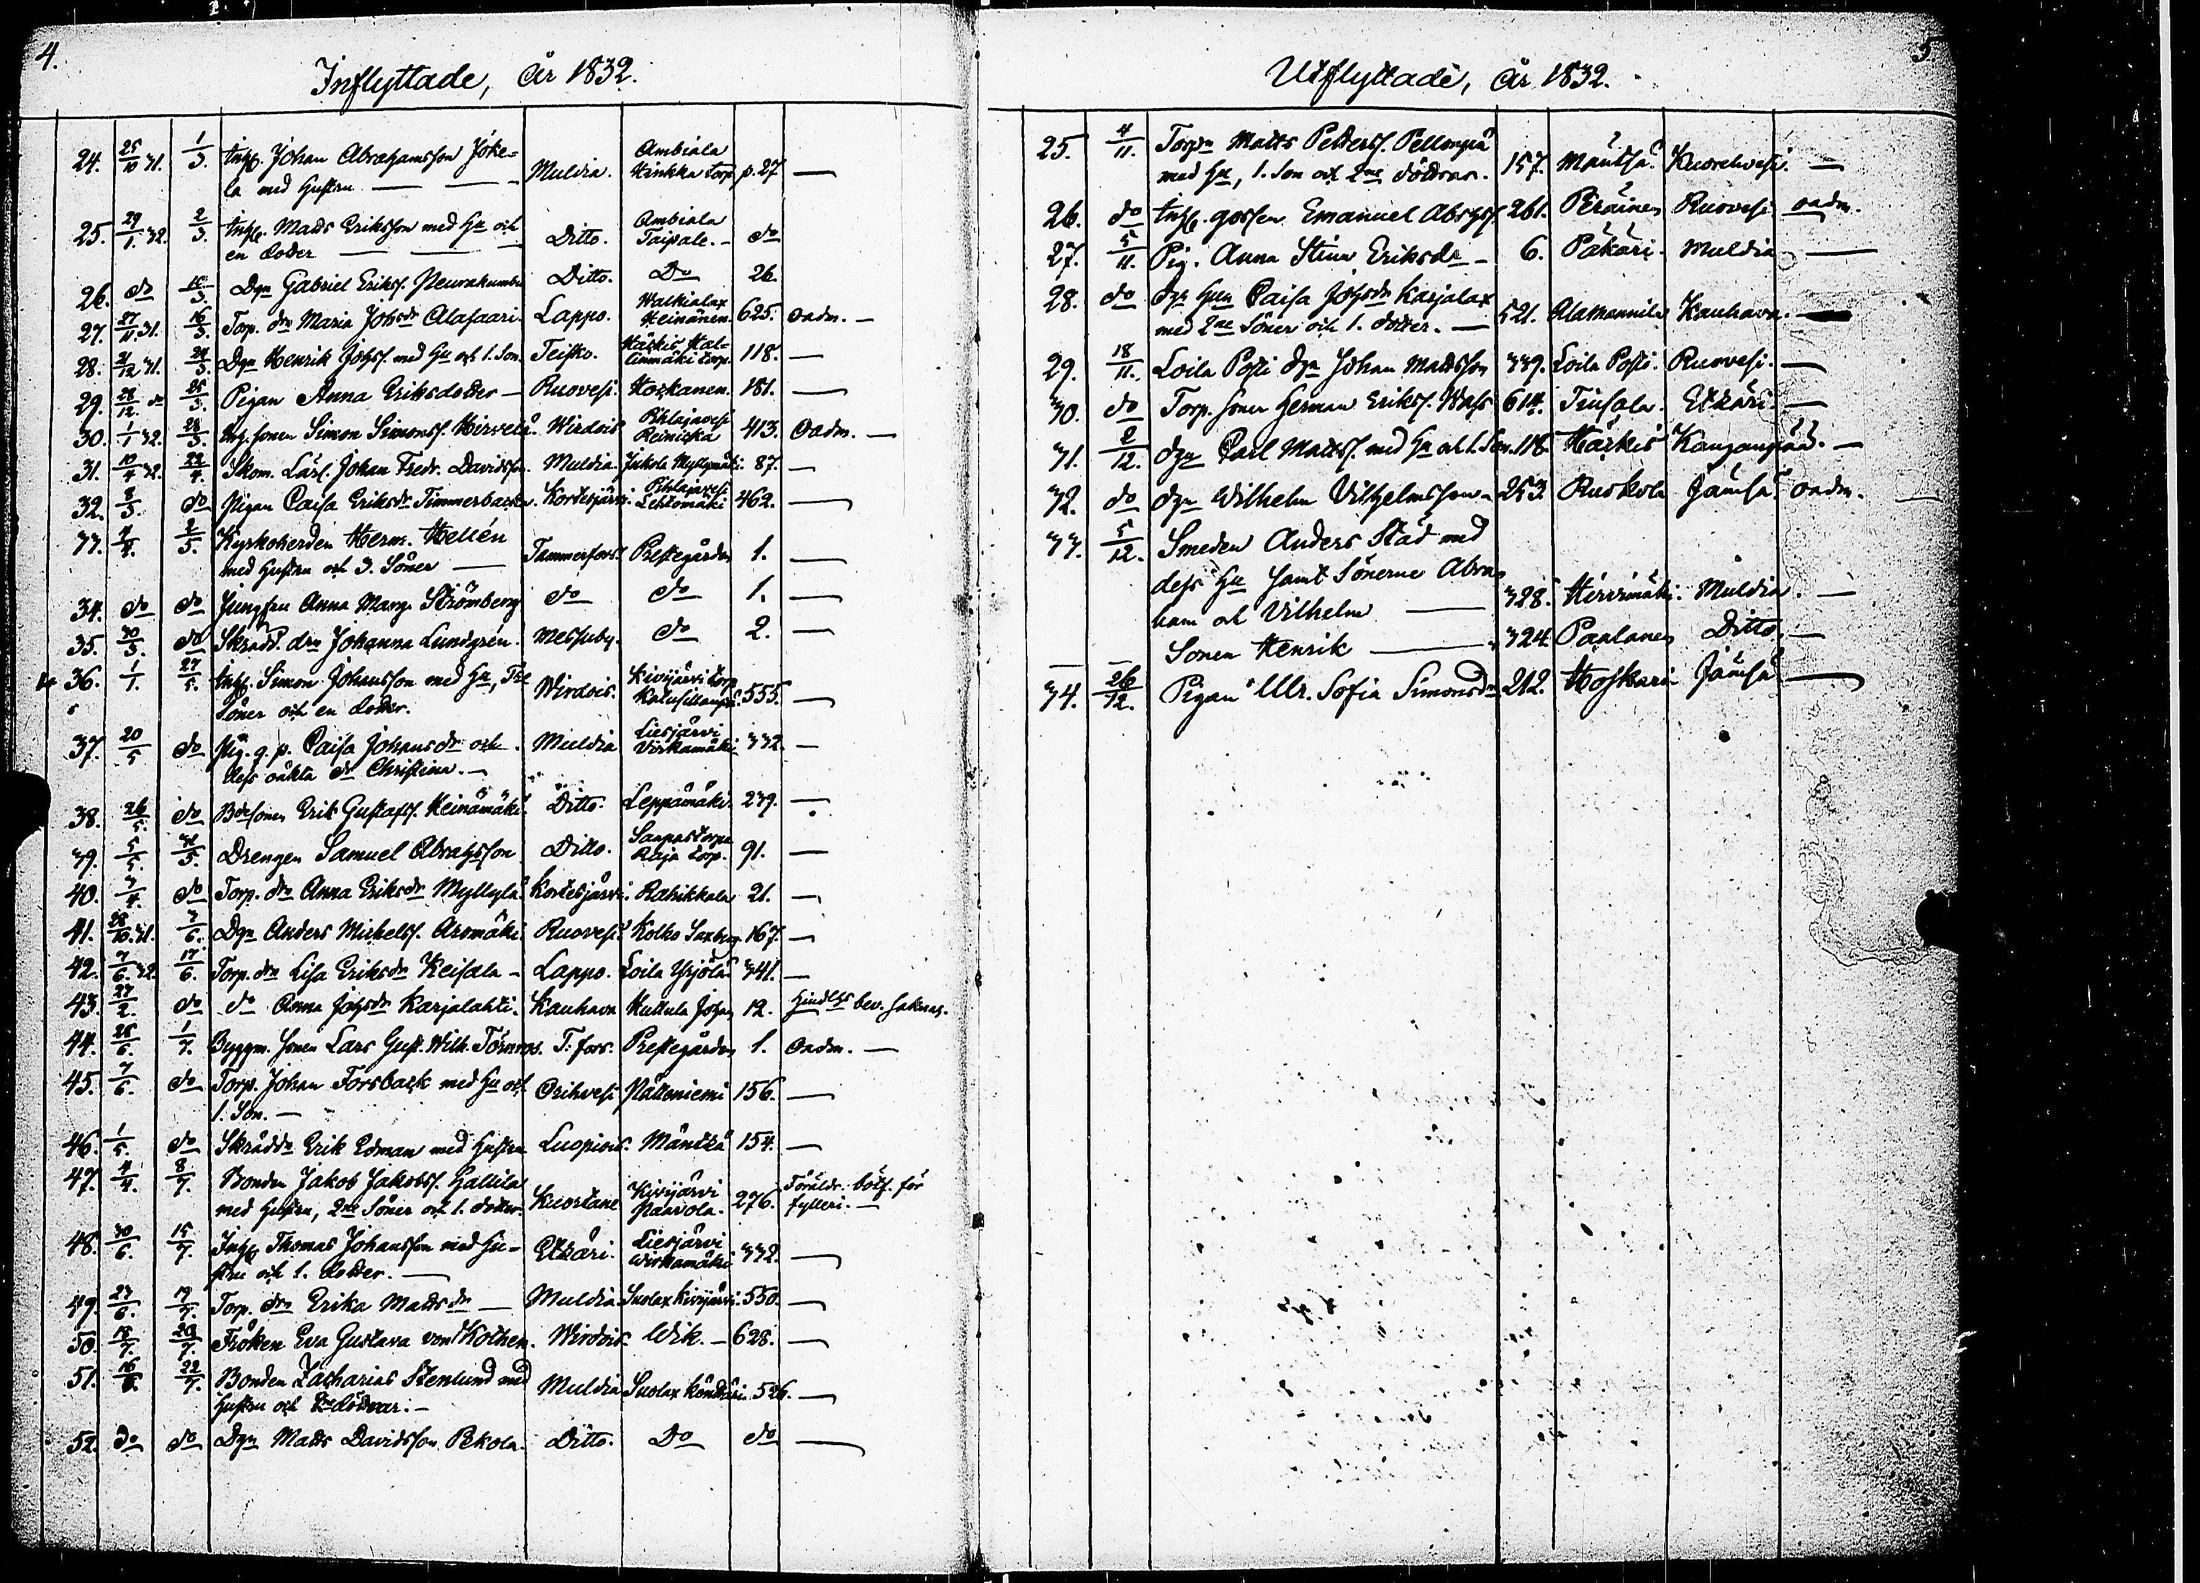 4.
Inflyttade, år 1832.
24. 25/10 31. 1/3. Inhs. Johan Abrahamsson Joke-
la med hustru — Muldia. Ambiala Hinkka torp p. 27 —
25. 29/1. 32. 2/3. Inhs. Matts Eriksson med Hu och
en dotter — Ditto. Ambiala Taipale. — do
26. do 10/3. Dgn Gabriel Erikss. Neurakumbu Ditto. Do 26.
27. 27/11. 31. 16/3. Torp. drn Maria Johsdr Alasaari. Lappo. Walkialax Heinänen. 625. oadm. —
28. 21/12 31. 24/3. Dgn Henrik Johss. med Hu och 1. Son. Teisko. 118. —
29. 28/12. do 25/3. Pigan Anna Eriksdotter — Ruovesi. Koskanen. 181. —
30. 1/1 32. 28/3. Simon Simonss. Hirvelä. Wirdois Pihlajavesi Reinicka 413. Oadm. —
31. 10/4 32. 22/4. Skom. Lärl. Johan Fredr. Davidsson. Muldia. Jukola Myllymäki. 87. —
32. 8/3. do Pigan Caisa Eriksdr Timmerbacka. Kortesjärvi. Pihlajavesi Lehtomäki 462. —
33. 4/4. 2/5. Kyrkoherden Herm. Hellén
med hustru och 3. Söner — Tammerfors. Prestegården 1. —
34. do do Jungfru Anna Marg. Strömberg do do 1. —
35. 30/3. do Skradd. drn Johanna Lundgrén. Messuby. do 2. —
36. 1/1. 27/5. Inhs. Simon Johansson med Hu, Tre
Söner och en dotter. Wirdois. Kivijärvi torp 555. —
37. 20/5 do Pig. q. p. Caisa Johansdr och
dess oäkta dr Christina. — Muldia Liesjärvi Virkamäki. 332. —
38. 26/5. do Bdesonen Erik Gustafss. Heinämäki. Ditto. Leppämäki. 239. —
39. 5/5. 31/5. Drengen Samuel Abrahsson Ditto. Saapastorpa Raja torp. 91. —
40. 3/4. do Torp. drn Anna Eriksdr Myllylä Kortesjärvi. Ratikkala 21. —
41. 28/10. 31. 3/6. Dgn Anders Michelss. Aromäki. Ruovesi. Kolho Saxberg 167. —
42. 7/6. 32. 17/6. Torp. drn Lisa Eriksdr Keisala — Lappo. Loila Yrjölä 341. —
43. 27/2. do do Anna Johsdr Karjalahti. Kauhava Huttula Johan 12. Hindlhs bev. saknas.
44. 25/6. 1/7. Byggm. Sonen Lars Gust. Wilh. Törnroos. T. fors. Prestegården 1. Oadm. —
45. 7/6. do Torp. Johan Forsback med Hu och
1. Son. — Orihvesi Pättiniemi 156. —
46. 1/5. do Skräddn Erik Edman med hustru Luopiois. Mäntkä 154. —
47. 4/4. 8/7. Bonden Jakob Jakobss. Hallila
med hustru, 2ne Söner och 1. dotter. Kuortane Kivijärvi Paavola. 276. Föräldr. bött. för fylleri. —
48. 30/6. 15/7. Inhs. Thomas Johansson med Hu-
stru och 1. dotter. — Etzäri. Liesjärvi Wirkamäki 332. —
49. 27/6. 19/7. Torp. drn Erika Mattsdr — Muldia Suolax Kivijärvi. 550. —
50. 18/7. 20/7. Fröken Eva Gustava von Kothen. Wirdois. Wik. — 628. —
51. 16/6. 22/7. Bonden Zacharias Stenlund med
hustru och 2ne döttrar. — Muldia Suolax Köntäri. 526. —
52. do do Dgn Matts Davidsson Pekola. Ditto. Do do —
5
Utflyttade, år 1832.
25. 4/11. Torpn Matts Petterss. Pellonpää
med Hu, 1. Son och 2ne döttrar. 157. Mäntsä. Kuorehvesi. —
26. do Inhs. gossen Emanuel Abrahss. 261. Peräinen Ruovesi oadm.
27. 5/11. Pig. Anna Stina Eriksdr — 6. Pakari. Muldia —
28. do dgs Hun Caisa Johsdr Karjalax
med 2ne Söner och 1. dotter. — 521. Alamannila Kauhava.
29. 18/11. Loila Posti dgn Johan Mattsson 339. Loila Posti. Ruovesi. —
30. do Torp. sonen Herman Erikss. Wass 614. Tiusala. Etzäri. —
31. 2/12. dgn Carl Matts. med Hu och 1. Son. 118. Härkis Kangasniemi. —
32. do dgn Wilhelm Vilhelmsson — 253. Ruskola Jämsä oadm.
33. 5/12. Smeden Anders Städ med
dess Hu samt Sönerne Abra-
ham och Vilhelm — 328. Hirvimäki. Muldia. —
Sonen Henrik — 324. Paalanen Ditto. —
34. 26/12. Pigan Ulr. Sofia Simonsdr 212. Hoskari Jämsä —